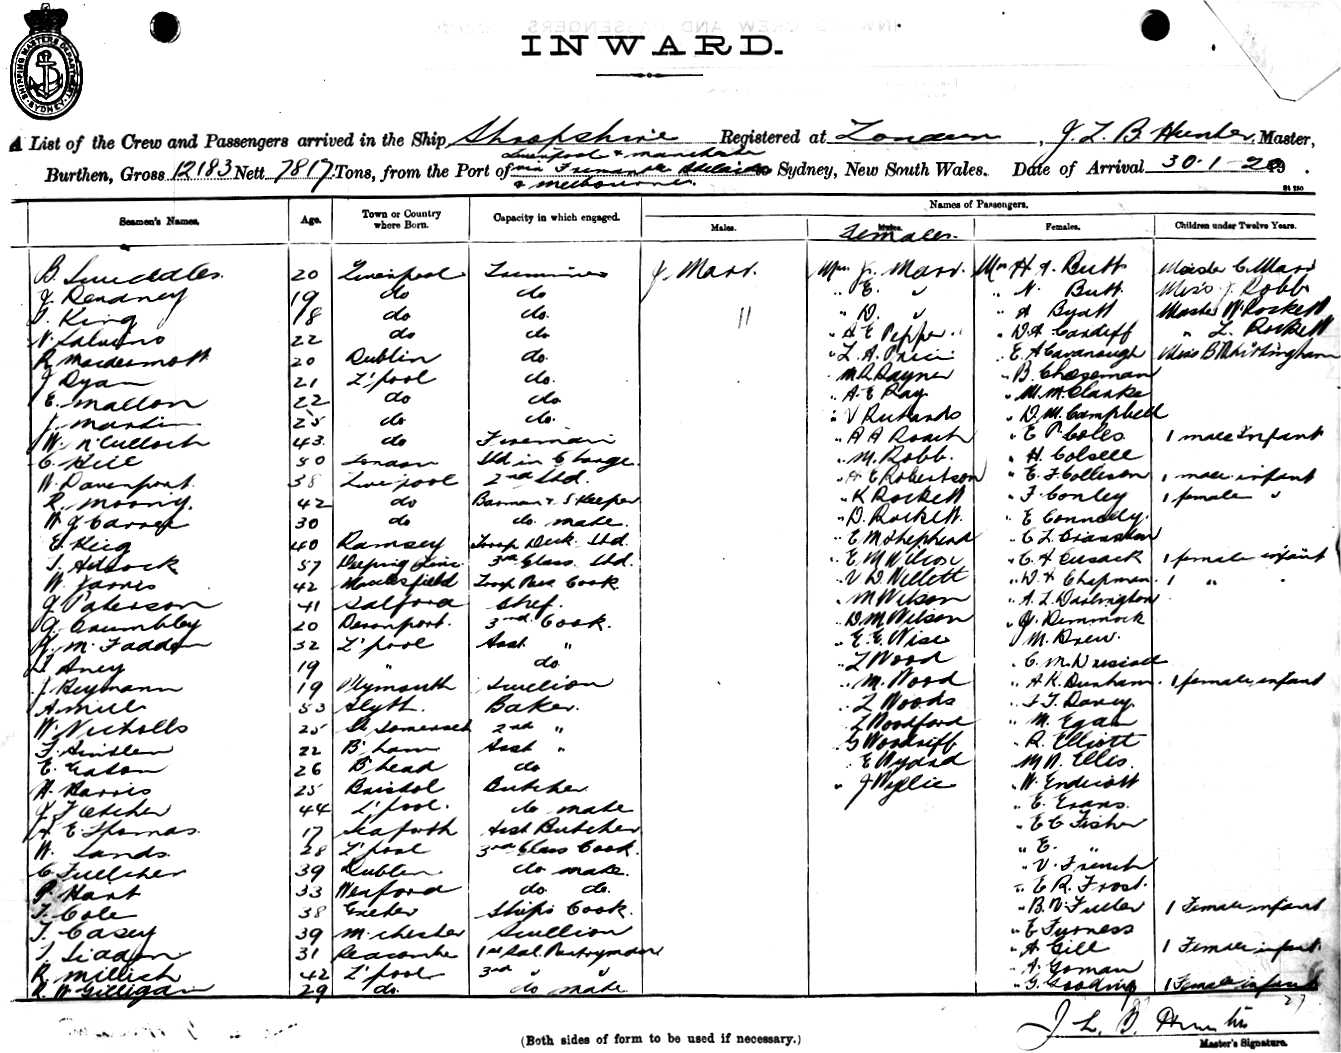 SHIPPING MASTERS DEPARTMENT SYDNEY
INWARD.
A List of the Crew and Passengers arrived in the Ship Shropshire Registered at London, J L B Hunter, Master,
Burthen, Gross 12183 Nett 7817 Tons, from the Port of Liverpool & Manchester via Fremantle Adelaide & Melbourne Sydney, New South Wales. Date of Arrival 30.1.20
Seamen's Names. Age. Town or Country where Born. Capacity in which engaged. Names of Passengers.
Males. Females. Females. Children under Twelve Years.
B. 20 Liverpool Trimmer J. Marr. Mrs J. Marr. Mrs H A Butt Master C. Marr
J 19 do do " E. " " N. Butt Miss J Robb
T King 18 do do. 11 " D. " " A Byatt Master W. Rockett
N. 22 do do " A E Pepper. " D A Cardiff " L. Rockett
R 20 Dublin do. " L. A. Price " E A Cavanaugh Miss B Whittingham
J Ryan 21 L'pool do. " M A Rayner " B. Cheseman
E. Mallon 22 do do " A. E Ray " M. M. Clarke
J. Martin 25 do do. " V Richards " D. M. Campbell
W. McCulloch 43 do Fireman " A A Roach " E P Coles 1 male Infant
C. Hill 50 London Std in Charge. " M. Robb. " H. Colsell
W. Davenport. 38 Liverpool 2nd Std. " A E Robertson " E. F Collison 1 male infant
R. Moony. 42 do Barman & S Keeper " K Rockett " F. Conley 1 female "
W J 30 do do. mate. " D. Rockett. " E Connelly.
E. King 40 Ramsey Troop Deck Std. " E M Shepherd " E L
T. Adcock 57 Deeping 3rd Class Std. " E M Wilcox " E A Cusack 1 female infant
W. James 42 Macclesfield Troop Cook " V D Willett " D. A Chapman. 1 " "
J Paterson 41 Salford Chef. " M Wilson " A. L Darlington
G. Crumbley 20 Devonport. 3rd Cook. " D. M. Wilson " Y. Dimmock
M. Fadden 32 L'pool Asst " " E. E. Wise " M. Drew.
19 " do " L Wood " C. M. Driscoll
J. Heymann 19 Plymouth Scullion " M. Wood " A R. Dunham. 1 female infant
A 53 Blyth. Baker. " L Woods " F. T. Davey.
W. Nicholls 25 Somerset 2nd " " L Woodford " M. Egan
F. 22 B'ham Asst " " G Woodriff " R. Elliott
E. Eaton 26 B'head do " E " M. N. Ellis.
H. Harris 25 Bristol Butcher " J Wyllie " W. Endicott
J. Fletcher 44 L'pool. do mate " E. Evans.
A E Thomas. 17 Seaforth Asst Butcher " E C Fisher
W. Sands. 28 L'pool 3rd Class Cook. " E. "
C. Fullcher 39 Dublin do mate. " V. French
P. Hart 33 Wexford do do. " E R. Frost.
T. Cole 38 Exeter Ship's Cook. " B. V. Fuller 1 Female infant
T. Casey 39 M'chester Scullion " E Furness
31 Seacombe 1st Sal. Pantryman " A Gill 1 Female infant
R. 42 L'pool 3rd " " " A. Goman
R. W Gilligan 29 do. do mate " G. Gooding 1 Female infant
J. L. B. Hunter
(Both sides of form to be used if necessary.) Master's Signature.